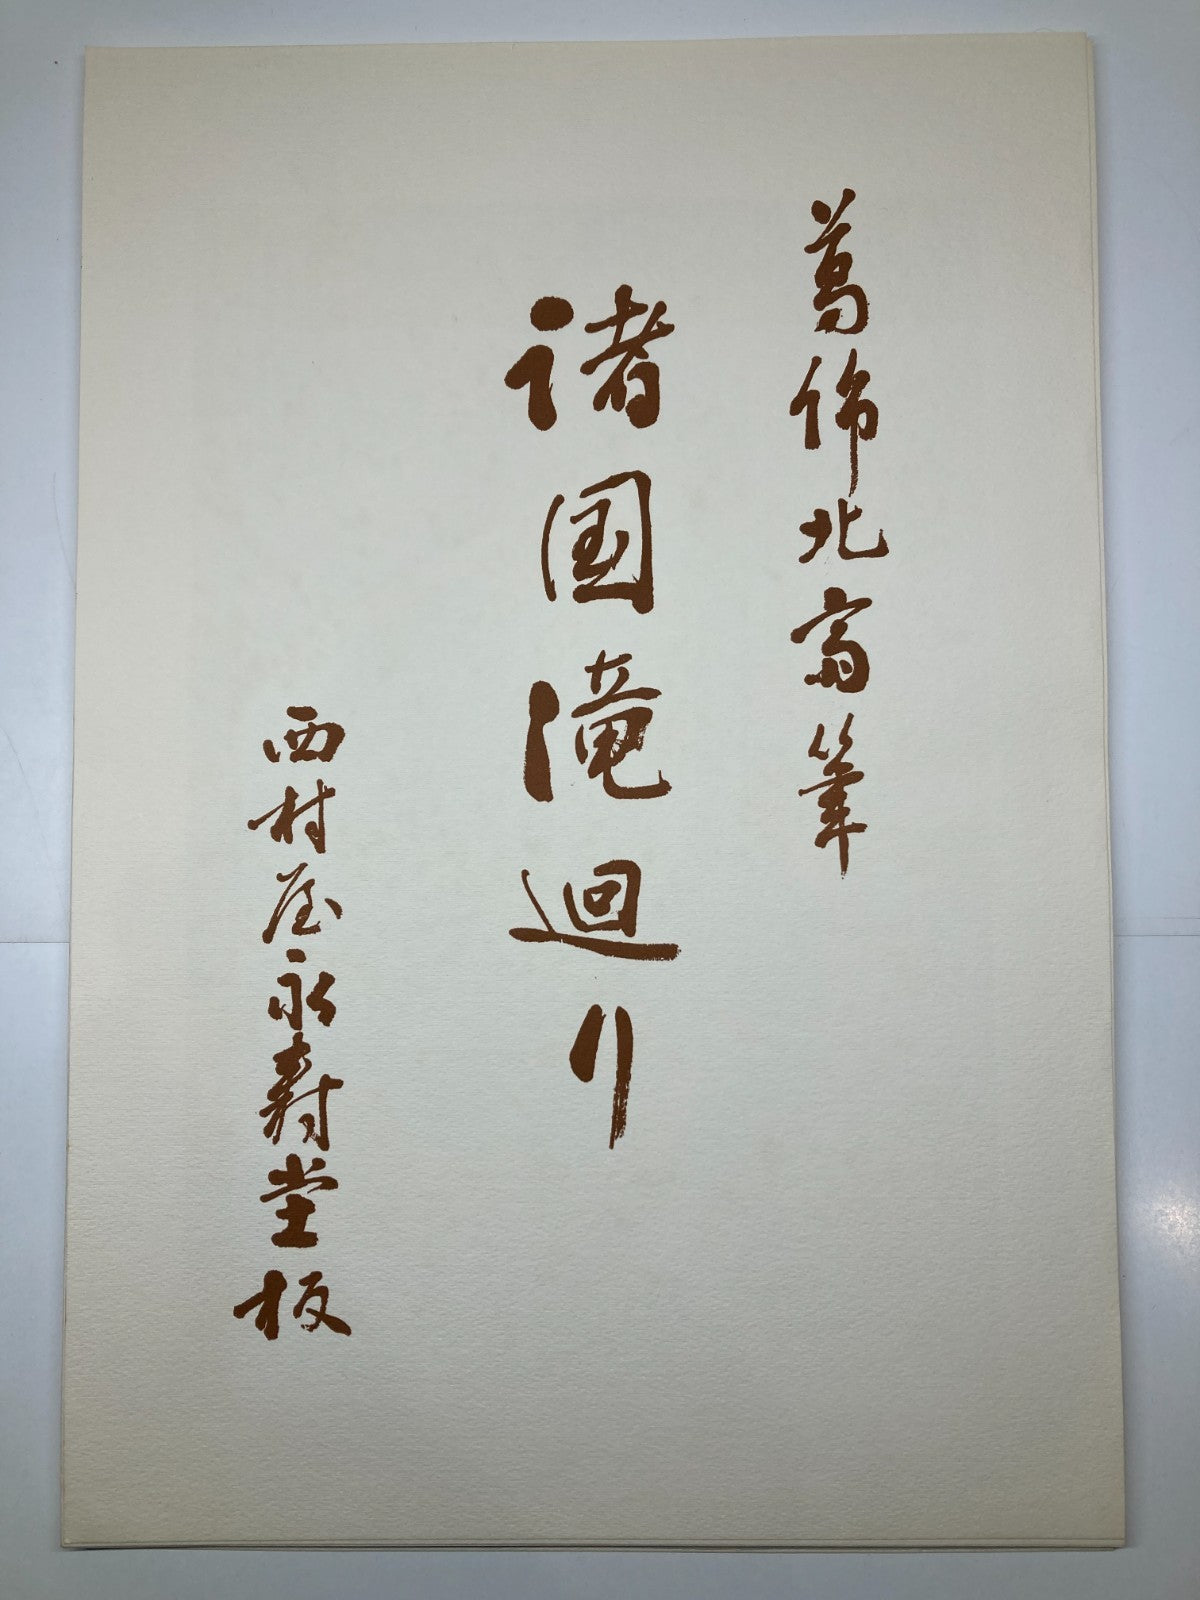 葛飾北斎筆
諸国滝廻り
西村屋永寿堂板